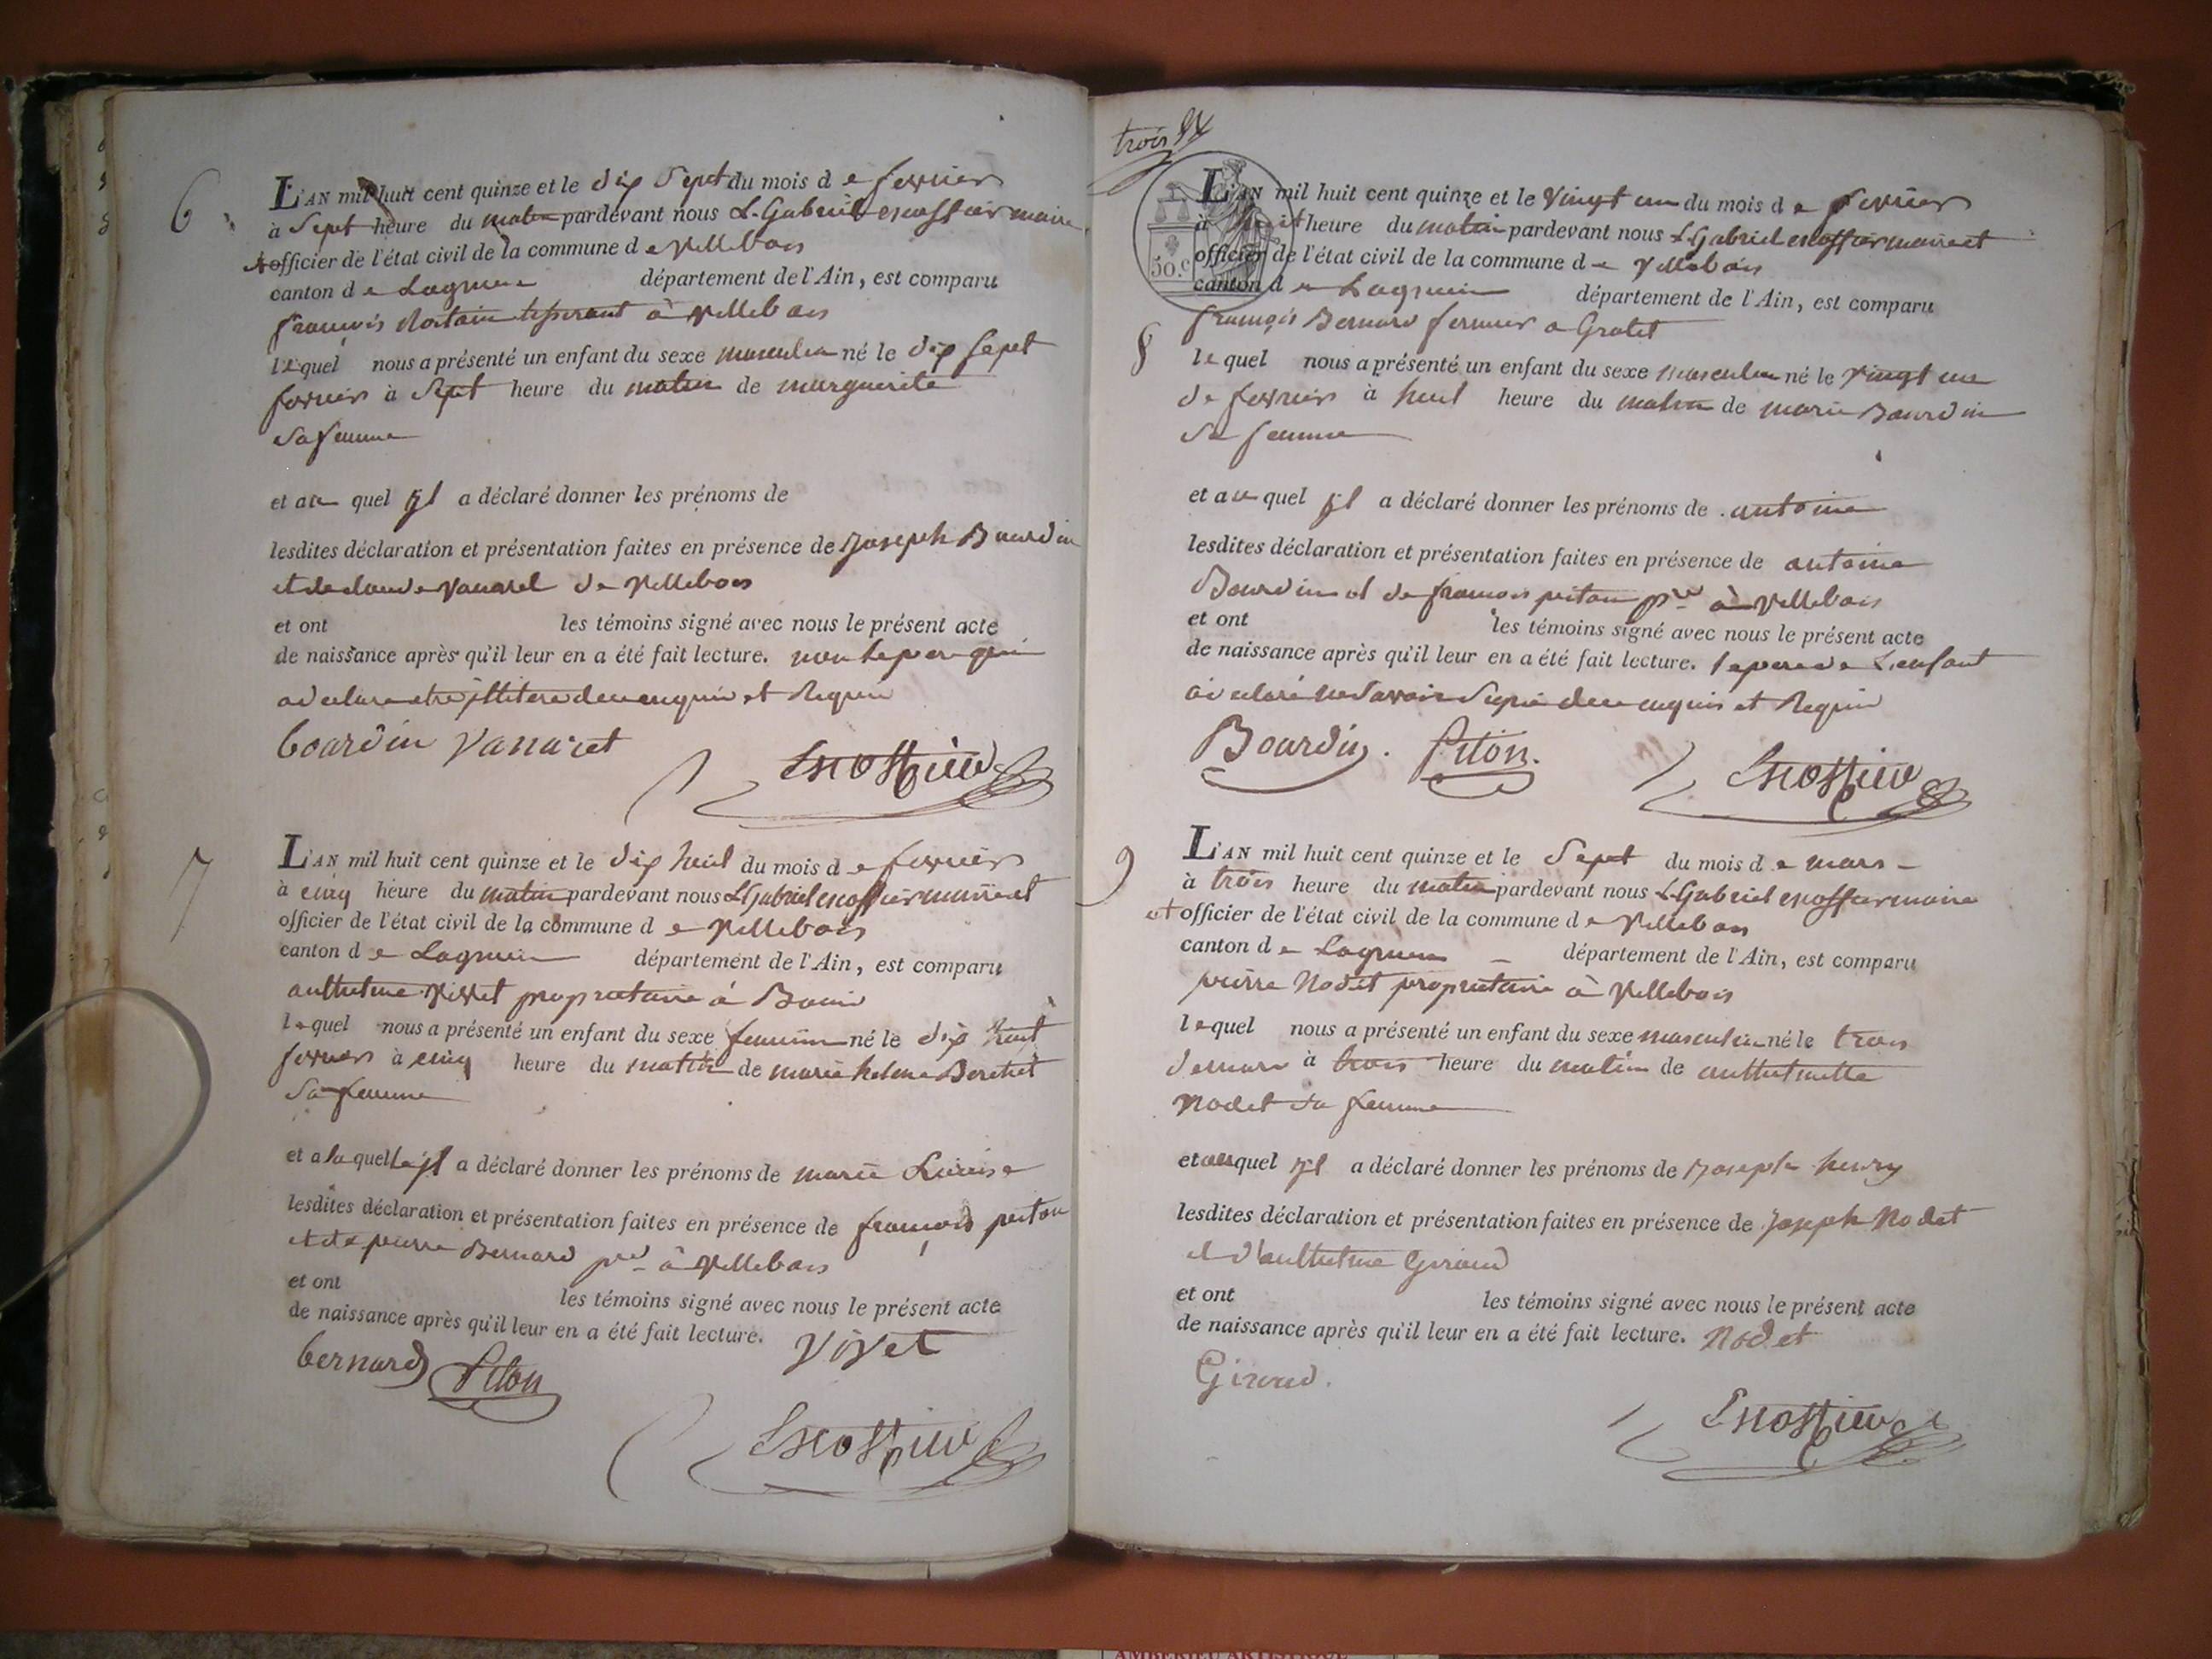 6
L'AN mil huit cent quinze et le dix sept du mois de fevrier
à sept heure du matin pardevant nous L. Gabriel escoffier maire
et officier de l'état civil de la commune de Villebois
canton de Lagnieu département de l'Ain, est comparu
françois tisserant à Villebois
lequel nous a présenté un enfant du sexe masculin né le dix sept
fevrier à sept heure du matin de marguerite
sa femme
et au quel jl a déclaré donner les prénoms de
lesdites déclaration et présentation faites en présence de Joseph Bourdin
et de claude Vanarel de Villebois
et ont les témoins signé avec nous le présent acte
de naissance après qu'il leur en a été fait lecture. non le pere qui
a declare etre jllitere de ce enquis et Requis
bourdin Vanaret
Escoffier
7
L'AN mil huit cent quinze et le dix huit du mois de fevrier
à cinq heure du matin pardevant nous L. Gabriel escoffier maire et
officier de l'état civil de la commune de Villebois
canton de Lagnieu département de l'Ain, est comparu
anthelme Vivet proprietaire à Bouis
lequel nous a présenté un enfant du sexe feminin né le dix huit
fevrier à cinq heure du matin de marie helene Beretiet
sa femme
et a la quelle jl a déclaré donner les prénoms de marie Louise
lesdites déclaration et présentation faites en présence de françois piton
et de pierre Bernard pre à Villebois
et ont les témoins signé avec nous le présent acte
de naissance après qu'il leur en a été fait lecture. Vivet
bernard Piton
Escoffier
trois
50.c
L'AN mil huit cent quinze et le vingt un du mois de fevrier
à huit heure du matin pardevant nous L. Gabriel escoffier maire et
officier de l'état civil de la commune de Villebois
canton de Lagnieu département de l'Ain, est comparu
françois Bernard fermier a Gratet
8
lequel nous a présenté un enfant du sexe masculin né le vingt un
de fevrier à huit heure du matin de marie Bourdin
sa femme
et au quel jl a déclaré donner les prénoms de antoine
lesdites déclaration et présentation faites en présence de antoine
Bourdin et de françois piton pre à Villebois
et ont les témoins signé avec nous le présent acte
de naissance après qu'il leur en a été fait lecture. le pere de L'enfant
a declaré ne savoir signé de ce enquis et Requis
Bourdin. Piton.
Escoffier
9
L'AN mil huit cent quinze et le sept du mois de mars
à trois heure du matin pardevant nous L. Gabriel escoffier maire
et officier de l'état civil de la commune de Villebois
canton de Lagnieu département de l'Ain, est comparu
pierre Nodet proprietaire à Villebois
lequel nous a présenté un enfant du sexe masculin né le trois
de mars à trois heure du matin de anthelmette
Nodet sa femme
et au quel jl a déclaré donner les prénoms de Joseph henry
lesdites déclaration et présentation faites en présence de Joseph Nodet
et d'anthelme Giroud
et ont les témoins signé avec nous le présent acte
de naissance après qu'il leur en a été fait lecture. Nodet
Giroud.
Escoffier